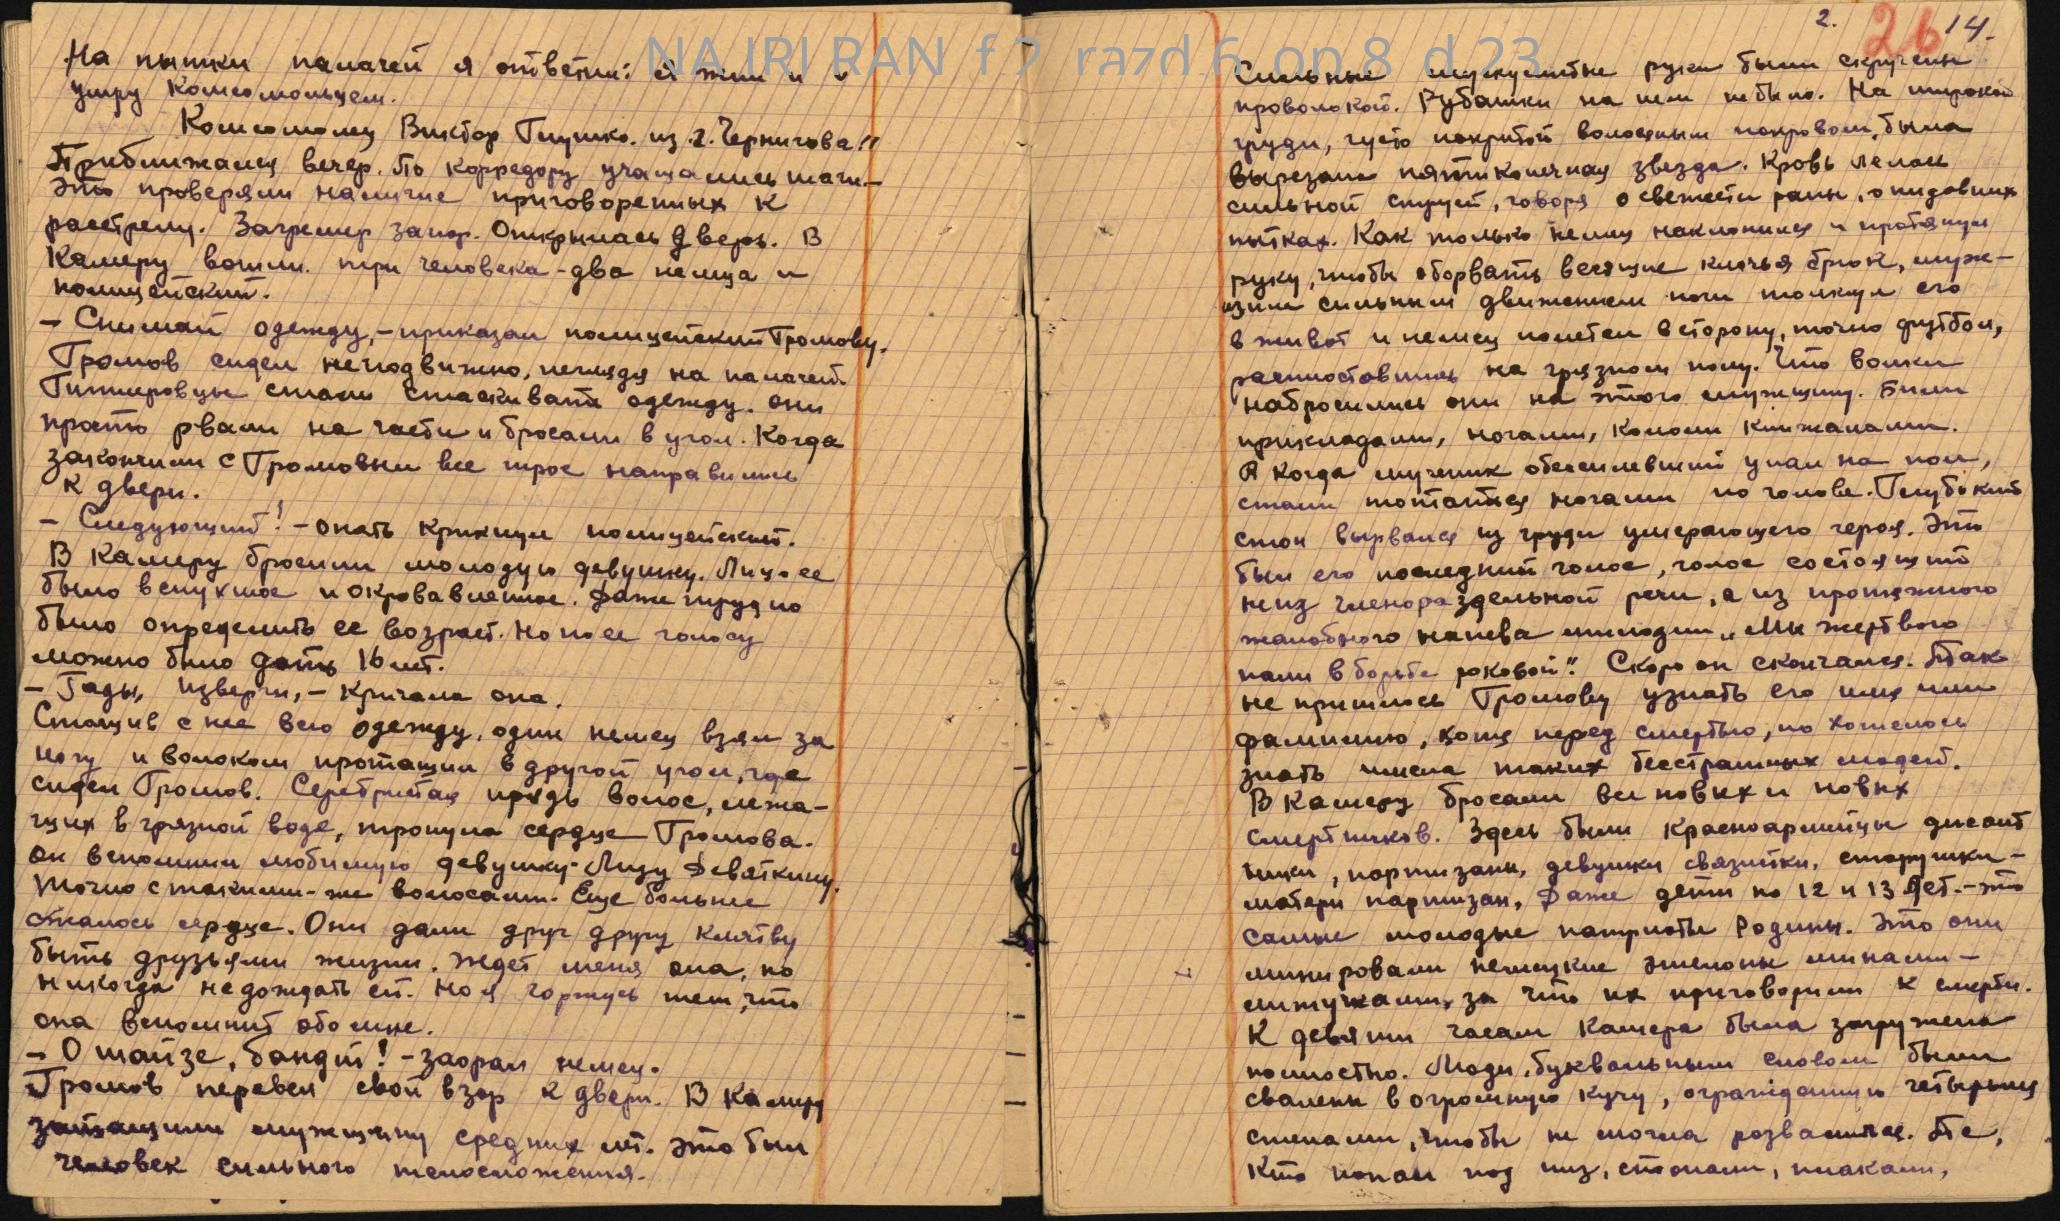 NA IRI RAN f 2 razd 6 op 8 d 23
На пытки палачей я ответил: я жил и
умру Комсомольцем.
Комсомолец Виктор Глушко. из г. Чернигова!!
Приближался вечер. По корредору учащались шаги –
это проверяли наличие приговоренных к
расстрелу. Загремел запор. Открылась дверь. В
Камеру вошли три человека – два немца и
полицейский.
– Снимай одежду, – приказал полицейский Громову.
Громов сидел неподвижно, неглядя на палачей.
Гитлеровцы стали стаскивать одежду. они
просто рвали на части и бросали в угол. Когда
закончили с Громовым все трое направились
к двери.
– Следующий! – опать крикнул полицейский.
В Камеру бросили молодую девушку. Лицо ее
было вспухшое и окровавленное. Даже трудно
было определить ее возраст. Но по ее голосу
можно было дать 16 лет.
– Гады, изверги, – кричала она.
Стащив с нее всю одежду, один немец взял за
ногу и волоком протащил в другой угол, где
сидел Громов. Серебристая прядь волос, лежа-
щих в грязной воде, тронула сердце Громова.
он вспомнил любимую девушку – Лизу Девяткину.
Точно с такими-же волосами. Еще больше
сжалось сердце. Они дали друг другу клятву
быть друзьями жизни. Ждет меня она, но
никогда недождать ей. Но я горжусь тем, что
она вспомнит обо мне.
– О шайзе, бандит! – заорал немец.
Громов перевел свой взор к двери. В Камеру
затащили мужщину средних лет. Это был
человек сильного телосложения.
2. 26 14.
Сильные мускулистые руки были скручены
проволокой. Рубашки на нем небыло. На широкой
груди, густо покрытой волосяным покровом, была
вырезана пятиконечная звезда. Кровь лилась
сильной струей, говоря о свежести раны, о недавних
пытках. Как только немец наклонился и протянул
руку, чтобы оборвать висящие клочья брюк, муж-
чина сильным движением ноги толкнул его
в живот и немец полетел в сторону, точно футбол,
распластовшись на грязном полу. Что волки
набросились они на этого мужщину. Били
прикладами, ногами, кололи кинжалами.
А когда мученик обессилевший упал на пол,
стали топтатся ногами по голове. Глубокий
стон вырвался из груди умерающего героя. Это
был его последний голос, голос состоящий
неиз членораздельной речи, а из протяжного
жалобного напева мелодии „Мы жертвою
пали в борьбе роковой". Скоро он скончался. Так
не пришлось Громову узнать его имя или
фамилию, хотя перед смертью, но хотелось
знать имена таких бесстрашных людей.
В Камеру бросали все новых и новых
смертников. Здесь были красноармейцы десант
ники, партизаны, девушки связистки, старушки –
матери партизан, Даже дети по 12 и 13 лет. – это
самые молодые патриоты Родины. Это они
минировали немецкие эшелоны минами –
за что их приговорили к смерти.
К девяти часам Камера была загружена
полностью. Люди, буквальным словом были
свалены в огромную кучу, огражденную четырьмя
стенами, чтобы не могла розвалиться. Те,
Кто попал под низ, стонали, плакали,